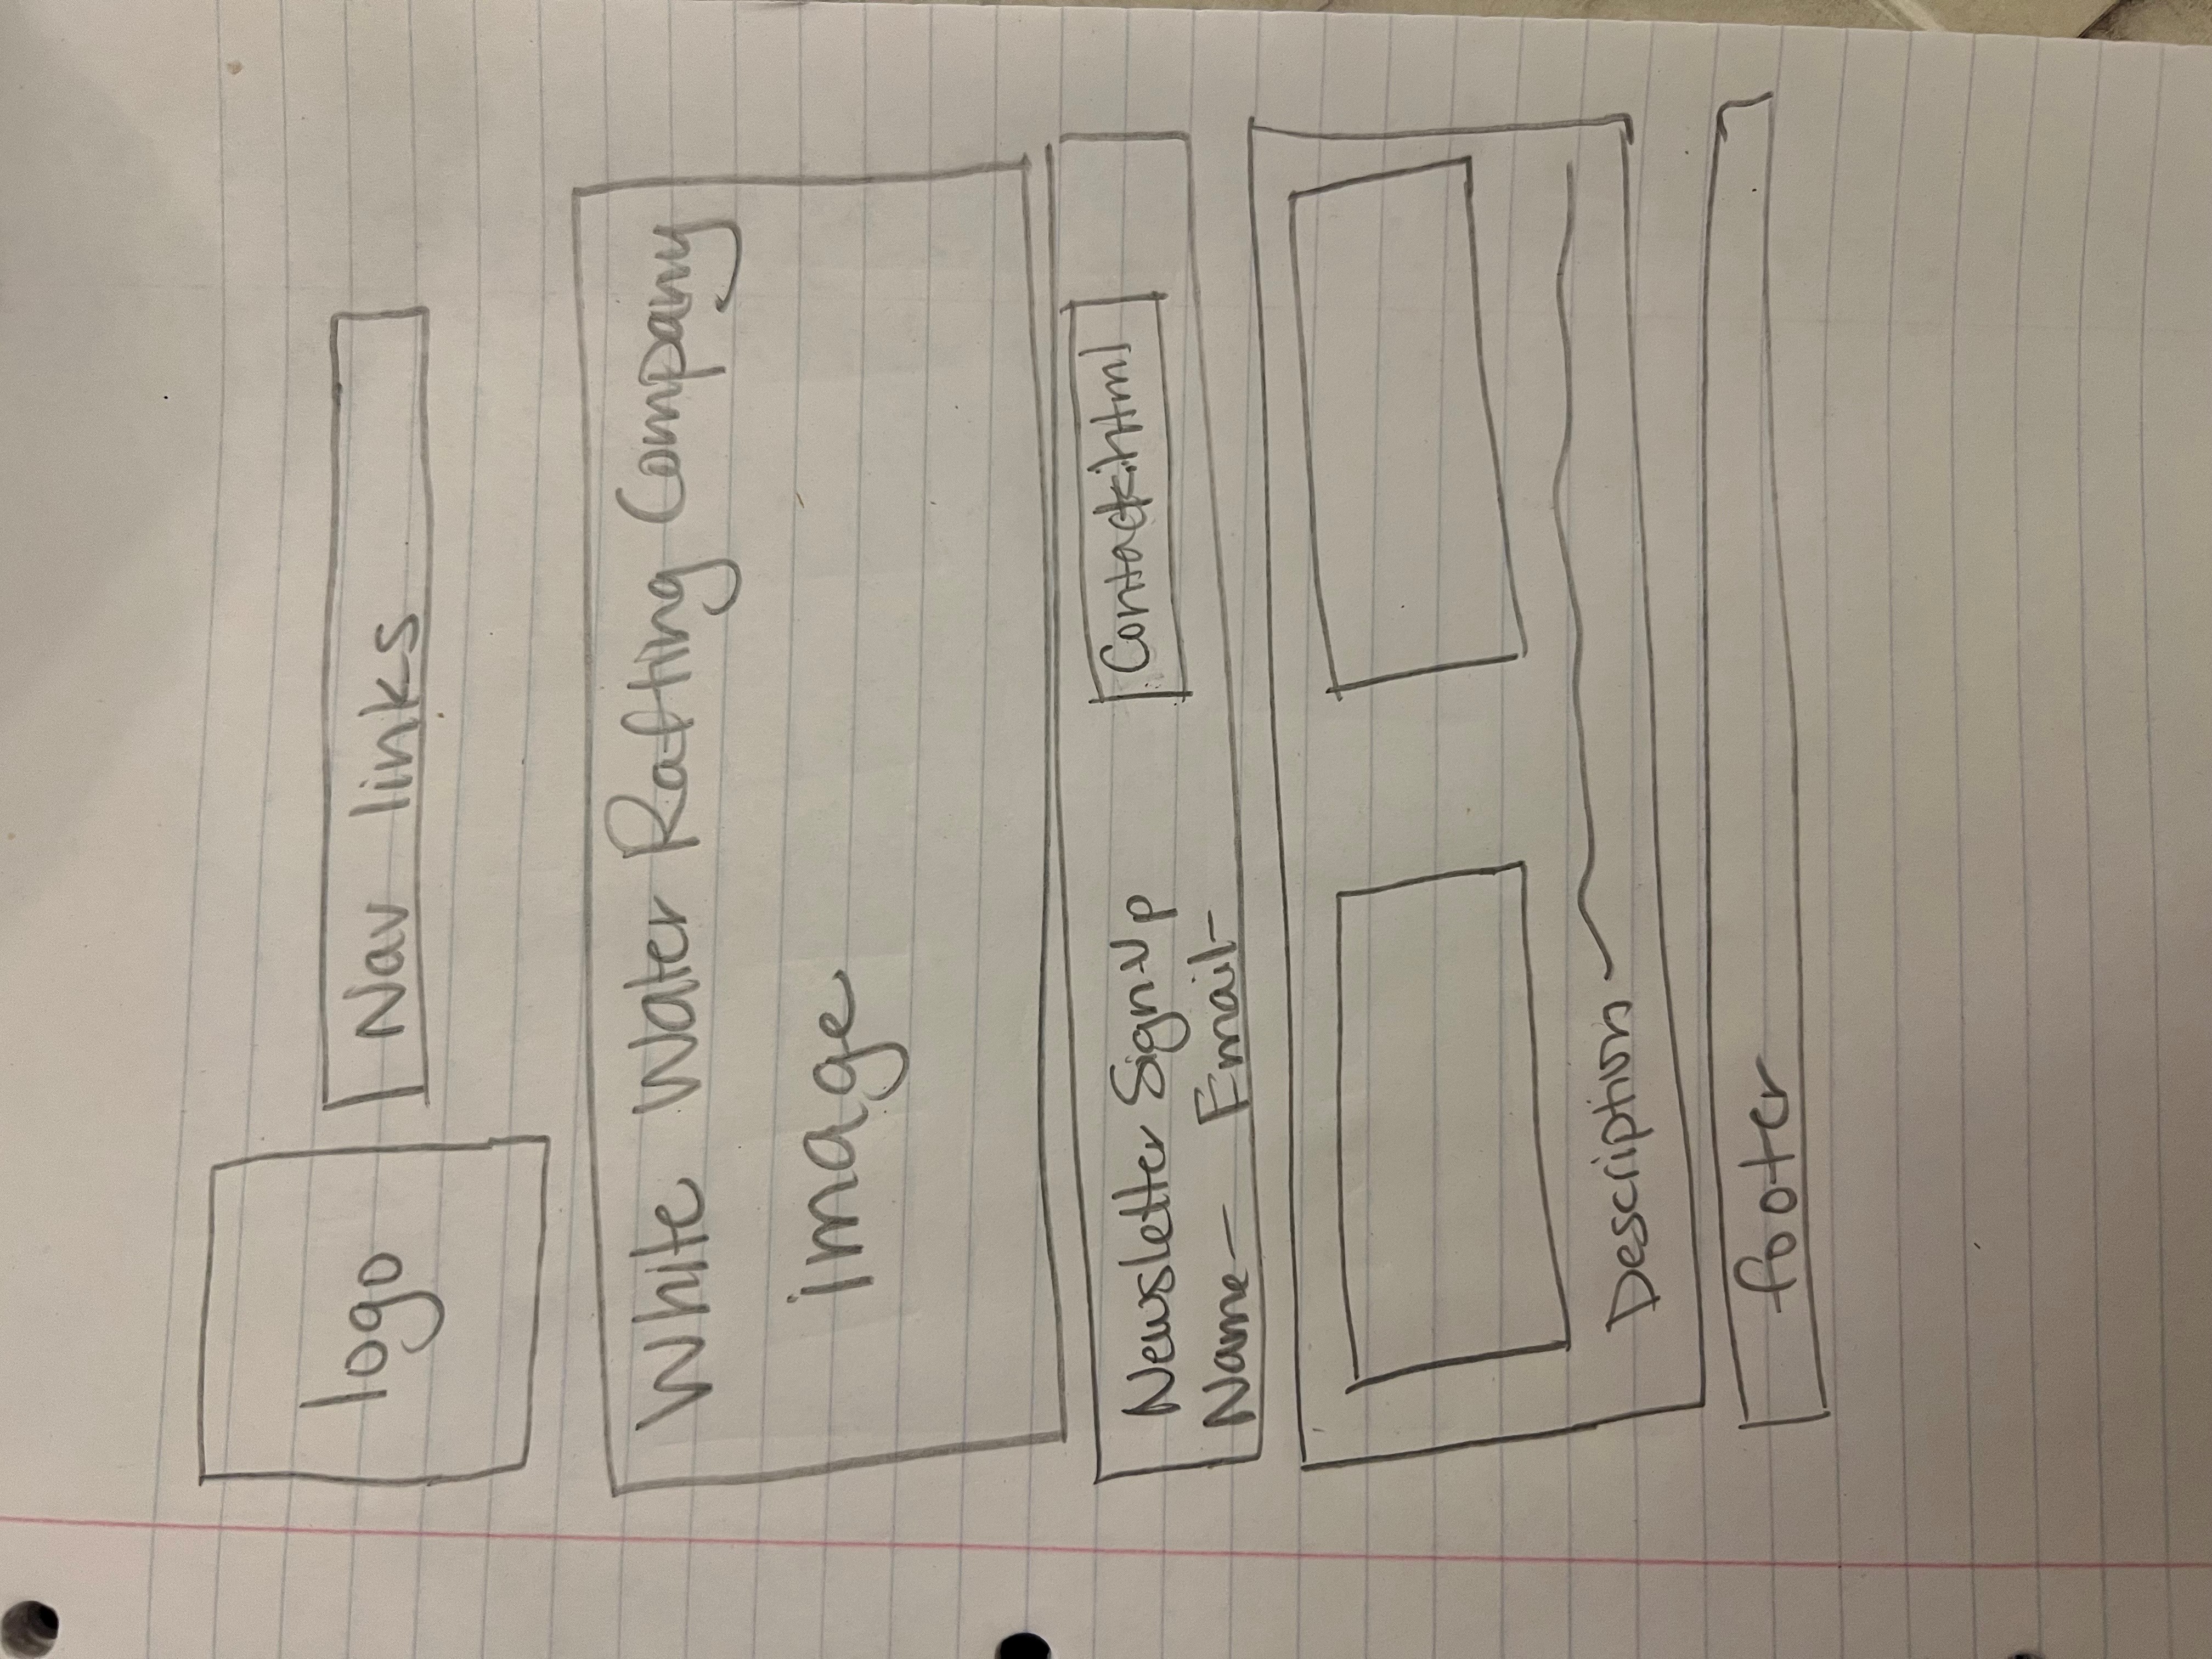 logo
Nav links
White Water Rafting Company
image
Newsletter Sign Up
Name- Email-
Contact.html
Description
footer